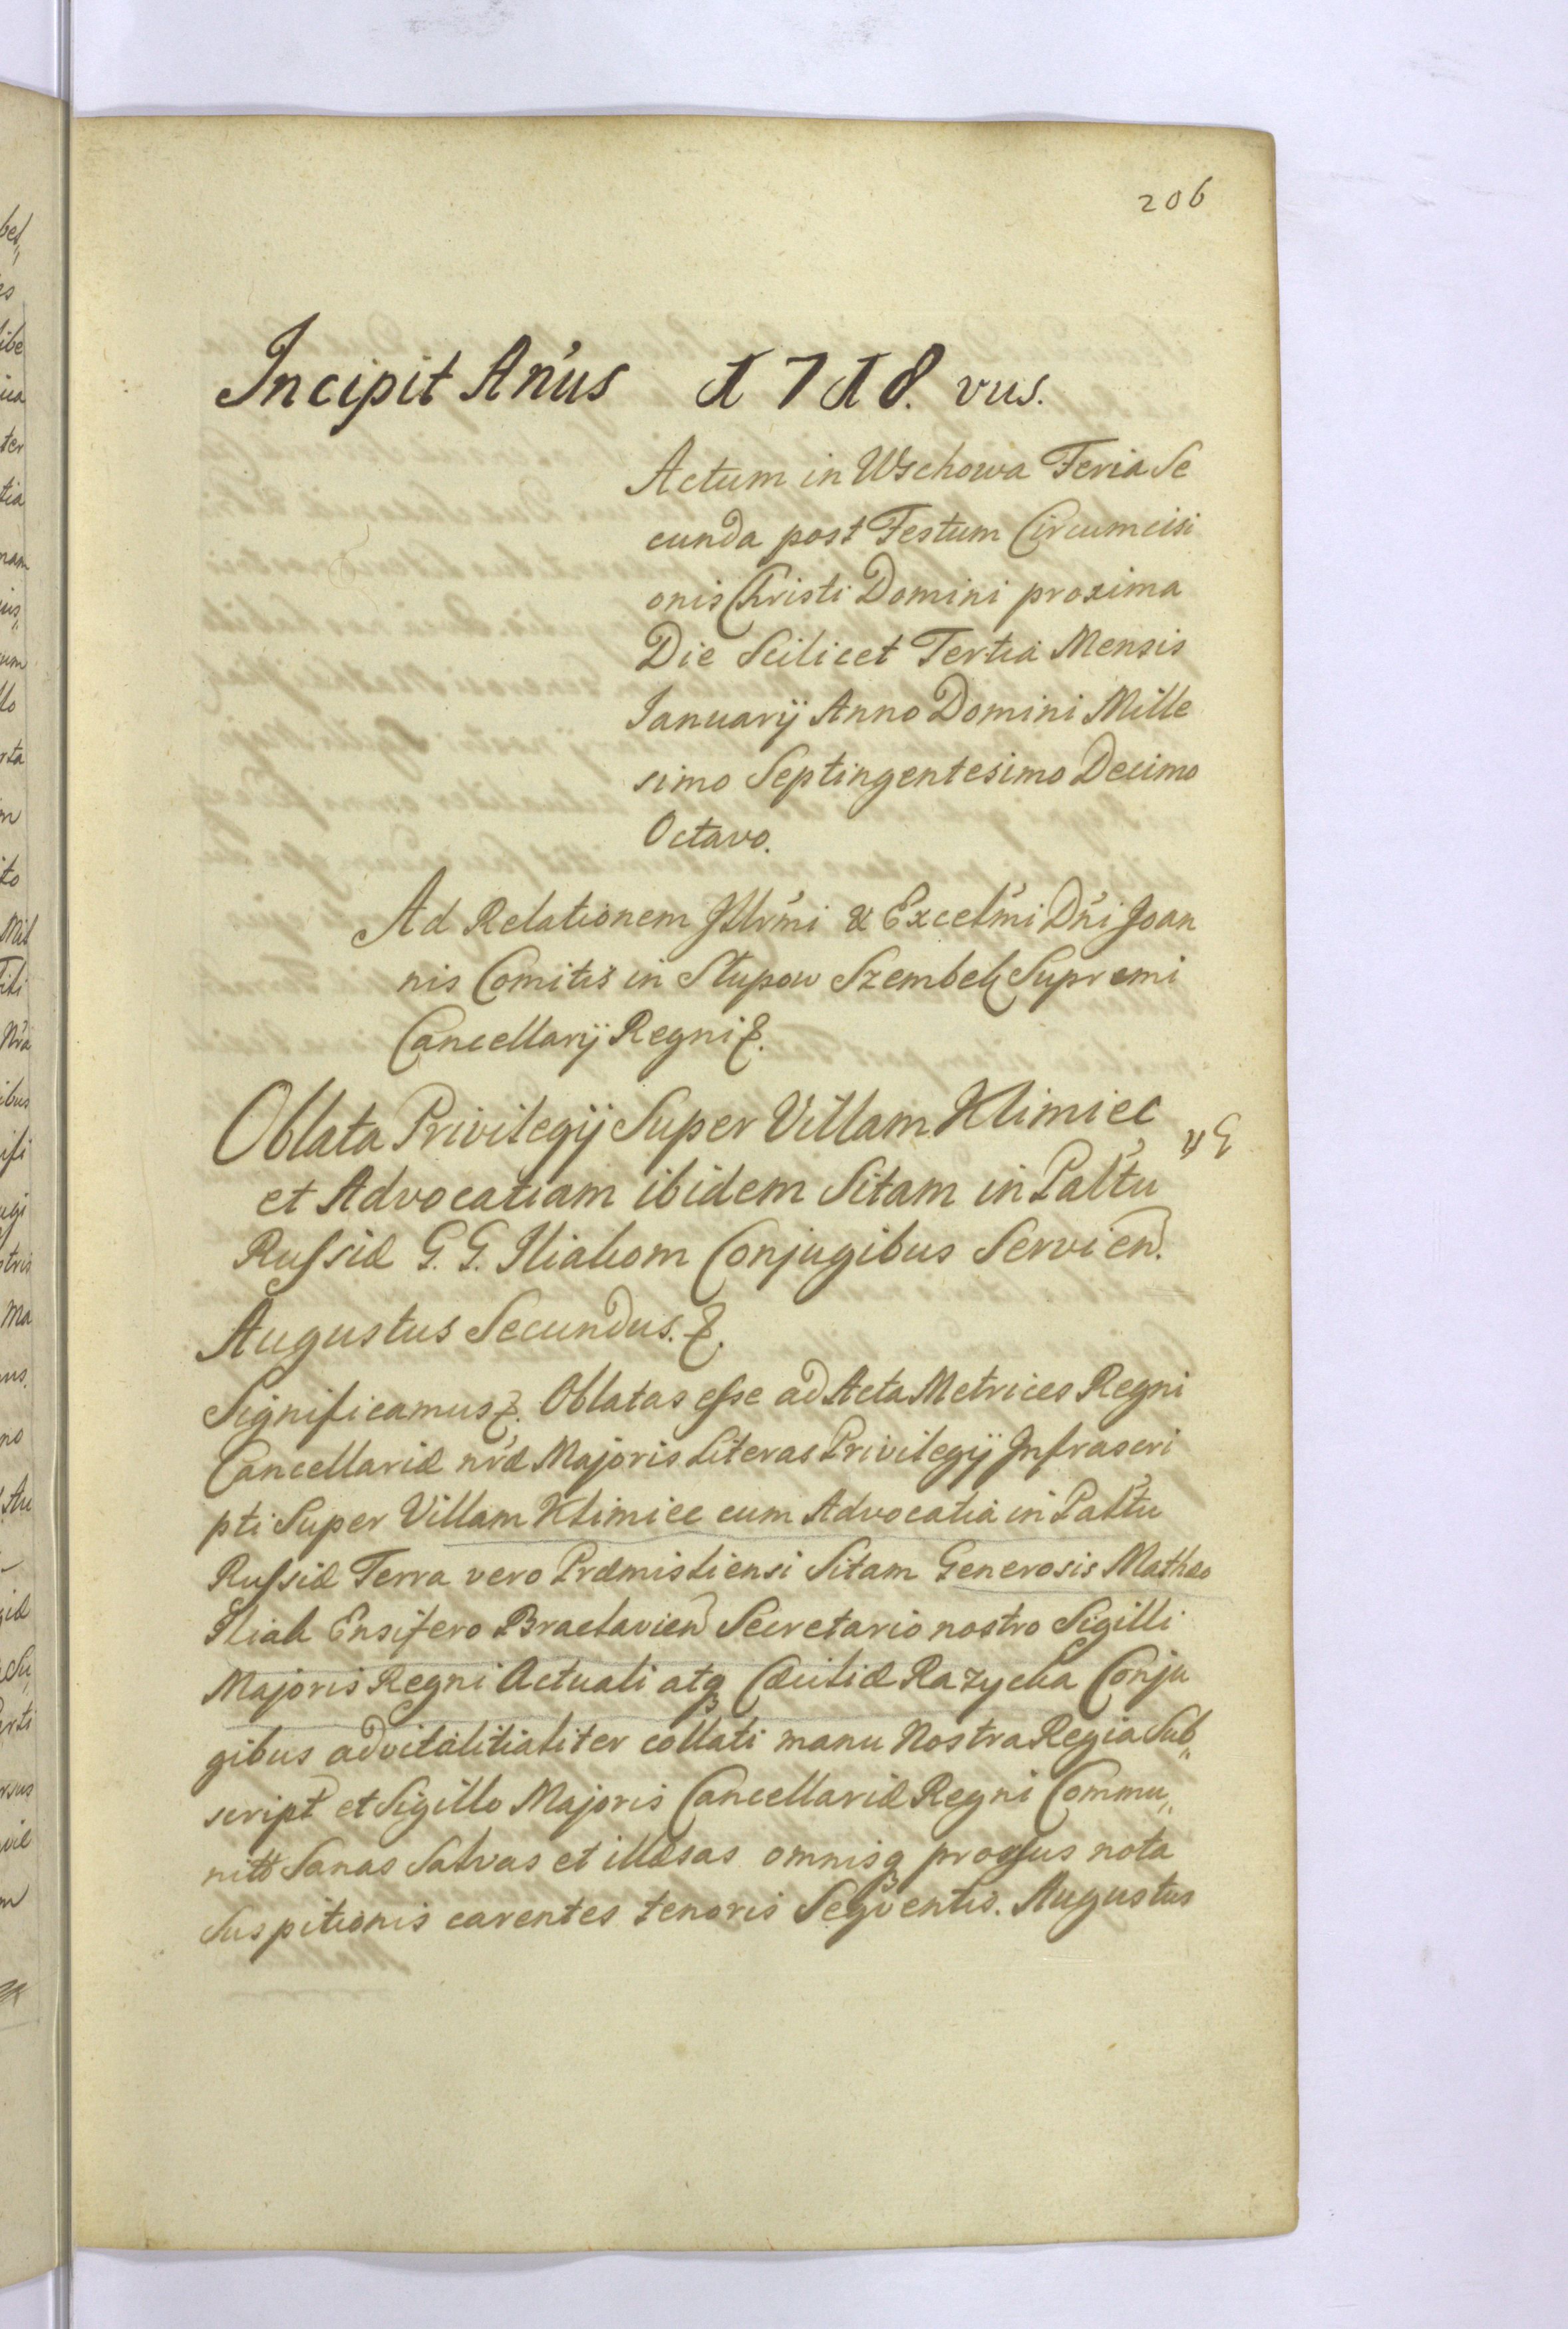 206
Incipit An'us 1718. vus.
Actum in Wschowa Feria Se
cunda post Festum Circumcisi
onis Christi Domini proxima
Die Scilicet Tertia Mensis
Januarij Anno Domini Mille
simo Septingentesimo Decimo
Octavo.
Ad Relationem Illr'mi & Excell'mi D'ni Joan
nis Comitis in Słupow Szembek Supremi
Cancellarij Regni &.
Oblata Privilegij Super Villam Klimiec
et Advocatiam ibidem Sitam in Pal'tu
Russiæ G. G. Iliakom Conjugibus Servien.
Augustus Secundus. &.
Significamus &. Oblatas esse ad Acta Metrices Regni
Cancellariæ nr'æ Majoris Literas Privilegij Infrascri
pti Super Villam Klimiec cum Advocatia in Pal'tu
Russiæ Terra vero Præmisliensi Sitam Generosis Mathæo
Iliak Ensifero Braclavien Secretario nostro Sigilli
Majoris Regni Actuali atq Cæciliæ Razycka Conju
gibus advitalitialiter collati manu Nostra Regia Sub„
script et Sigillo Majoris Cancellariæ Regni Commu„
nitt Sanas Salvas et illæsas omnisq prorsus nota
Suspitionis carentes tenoris Seqventis. Augustus